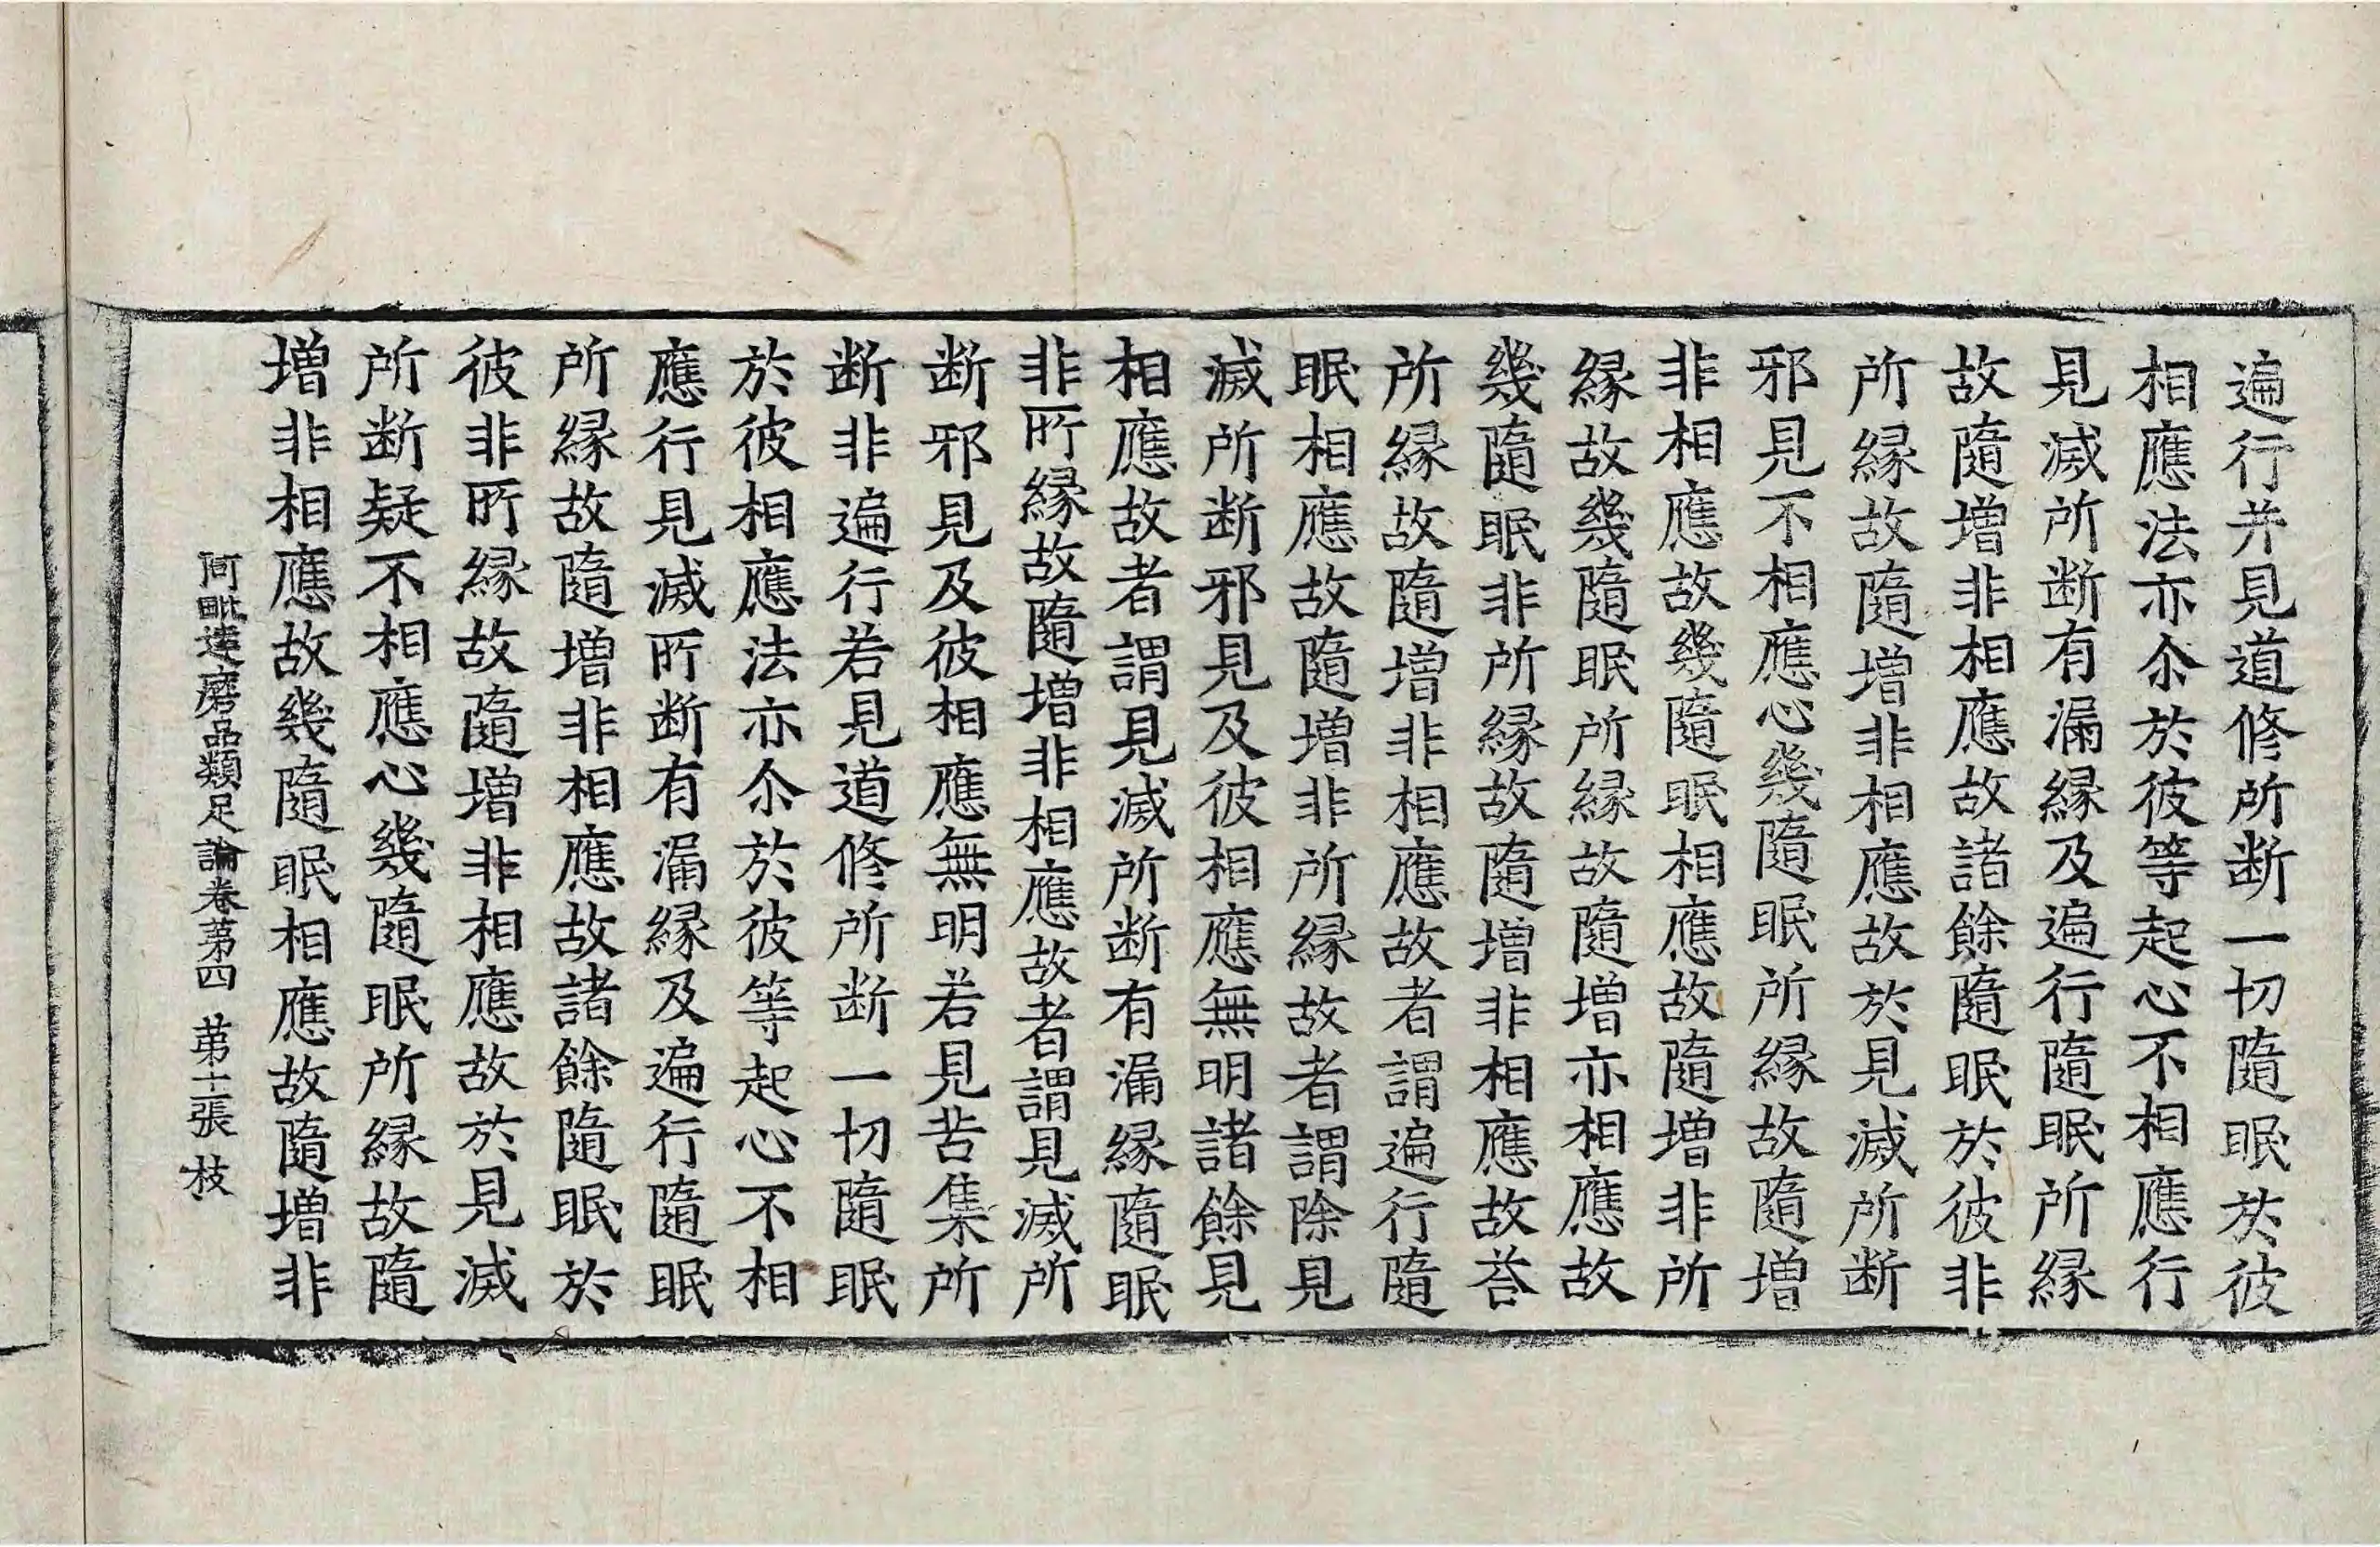 遍行并見道修所断一切隨眠於彼
相應法亦尒於彼等起心不相應行
見滅所断有漏縁及遍行隨眠所縁
故隨增非相應故諸餘隨眠於彼非
所縁故隨增非相應故於見滅所断
邪見不相應心幾隨眠所縁故隨增
非相應故幾隨眠相應故隨增非所
縁故幾隨眠所縁故隨增亦相應故
幾隨眠非所縁故隨增非相應故荅
所縁故隨增非相應故者謂遍行隨
眠相應故隨增非所縁故者謂除見
滅所断邪見及彼相應無明諸餘見
相應故者謂見滅所断有漏縁隨眠
非所縁故隨增非相應故者謂見滅所
断邪見及彼相應無明若見苦集所
断非遍行若見道修所断一切隨眠
於彼相應法亦尒於彼等起心不相
應行見滅所断有漏縁及遍行隨眠
所縁故隨增非相應故諸餘隨眠於
彼非所縁故隨增非相應故於見滅
所断疑不相應心幾隨眠所縁故隨
增非相應故幾隨眠相應故隨增非
阿毗達磨品類足論卷第四 第十二張 枝